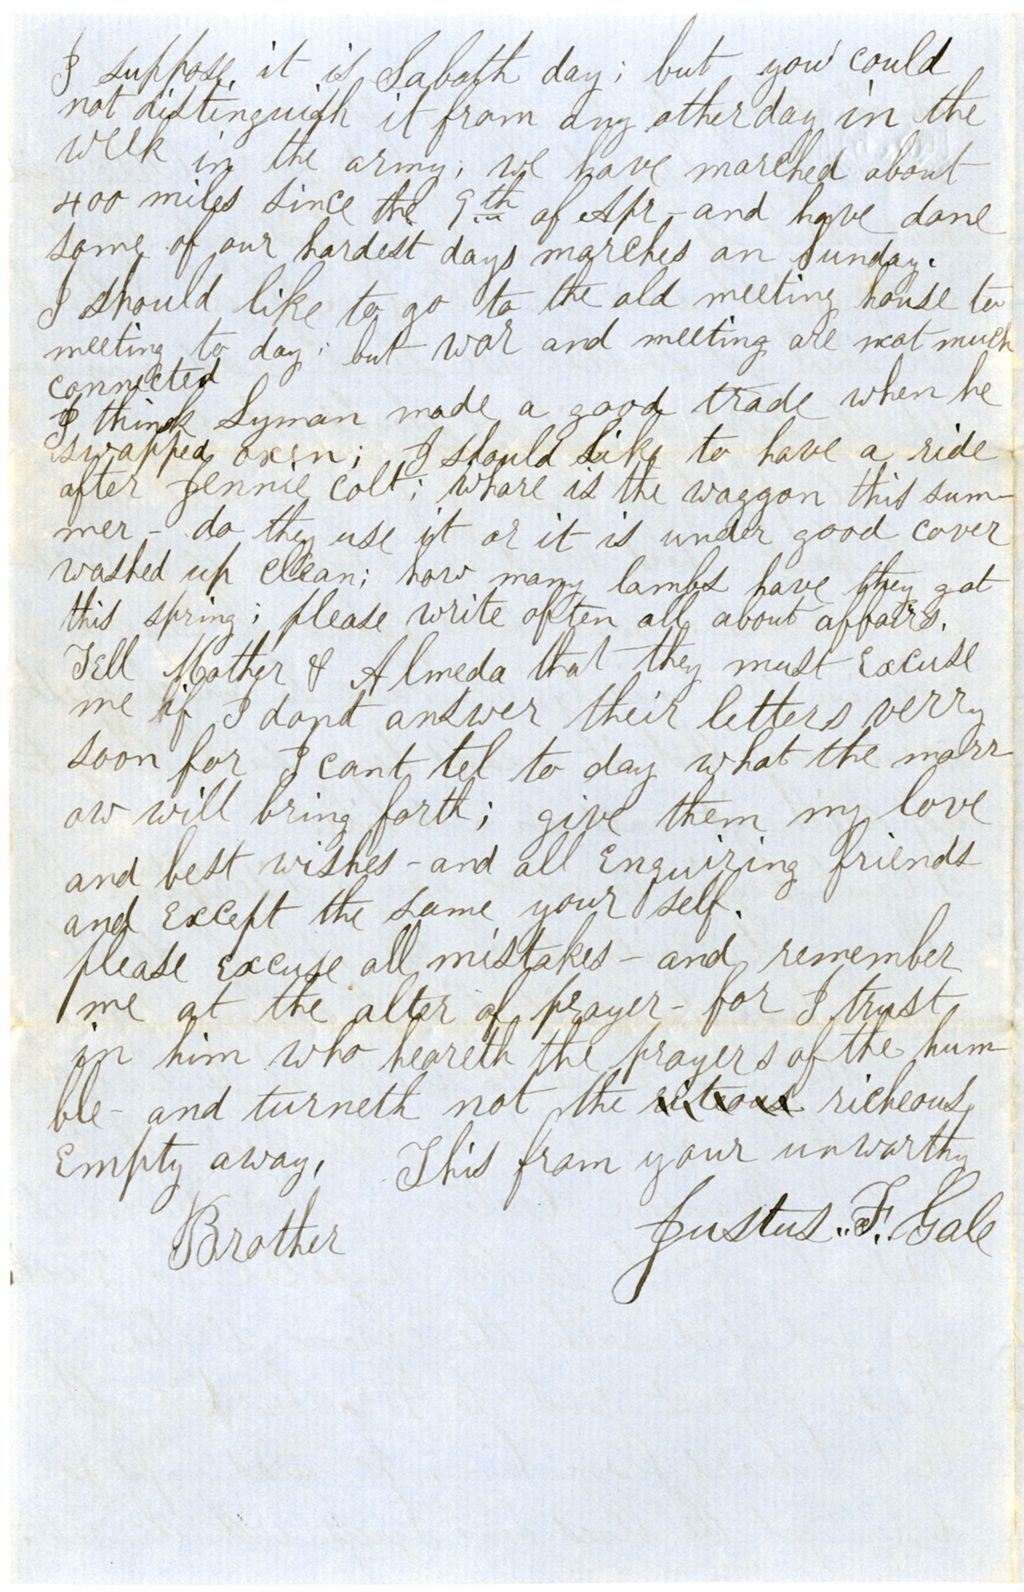 I suppose it is Sabath day; but you could
not distinguish it from any other day in the
week in the army; we have marched about
400 miles since the 9th of Apr - and have done
some of our hardest days marches on Sunday.
I should like to go to the old meeting house to
meeting to day; but war and meeting are not much
connected
I think Lyman made a good trade when he
swapped oxen; I should like to have a ride
after Jennie colt; whare is the waggon this sum-
mer - do they use it or it is under good cover
washed up clean; how many lambs have they got
this spring; please write often all about affairs.
Tell Mother & Almeda that they must excuse
me if I dont answer their letters verry
soon for I cant tel to day what the morr
ow will bring forth; give them my love
and best wishes - and all enquiring friends
and except the same your self.
please excuse all mistakes - and remember
me at the alter of prayer - for I trust
in him who heareth the prayers of the hum-
ble - and turneth not the richeous
empty away, This from your unworthy
Brother Justus. F. Gale